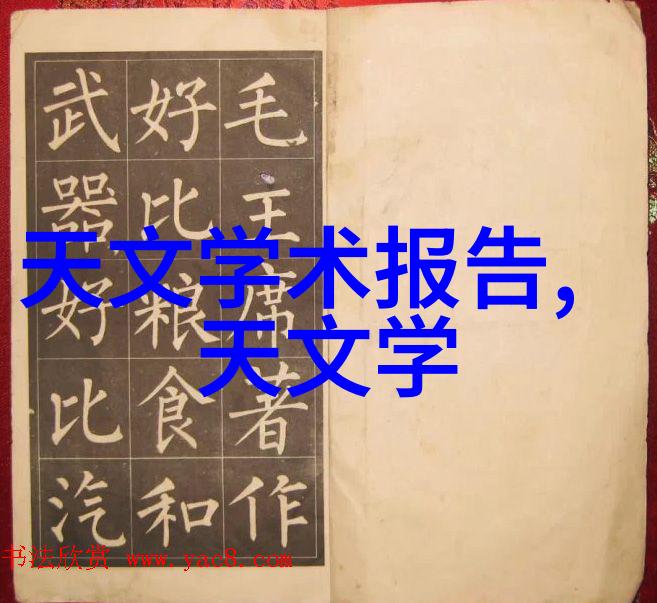 毛主席著作
好比粮食和
武器好比汽
天文学术报告,
天文学
书法欣赏 www.yac8.com